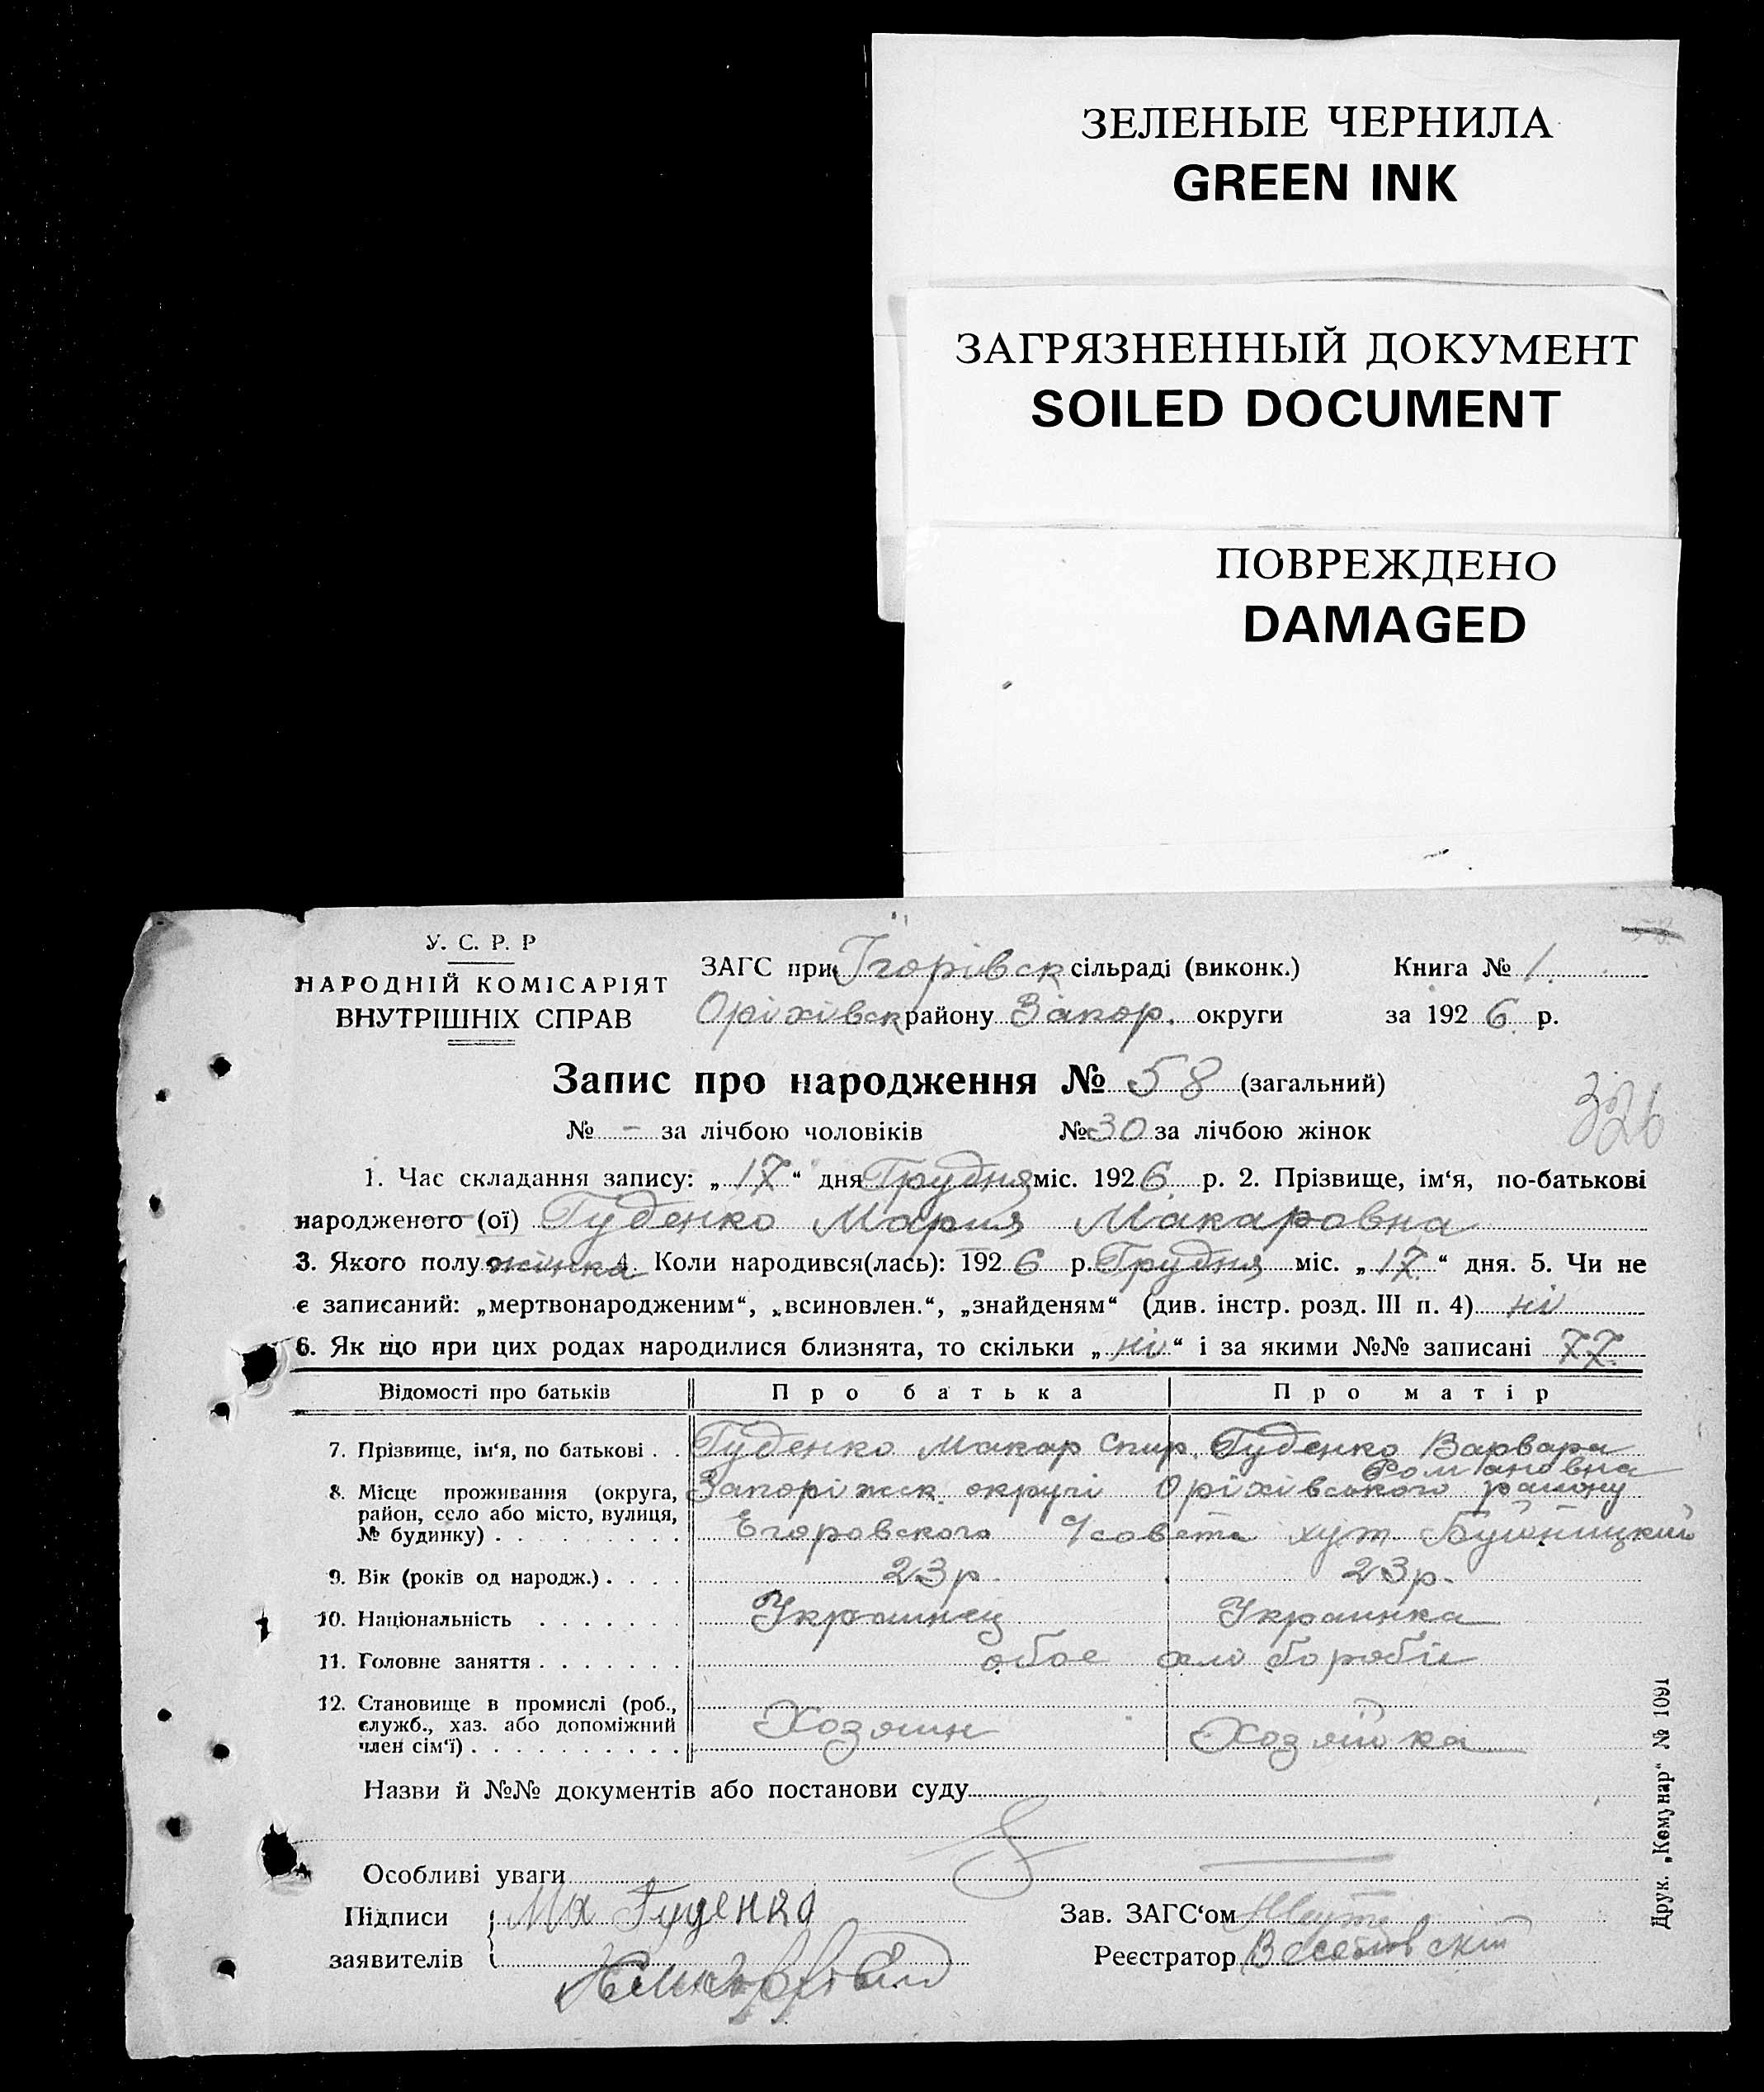 ЗЕЛЕНЫЕ ЧЕРНИЛА
GREEN INK
ЗАГРЯЗНЕННЫЙ ДОКУМЕНТ
SOILED DOCUMENT
ПОВРЕЖДЕНО
DAMAGED
У. С. Р. Р
НАРОДНІЙ КОМІСАРІЯТ
ВНУТРІШНІХ СПРАВ
ЗАГС при Ігорівск сільраді (виконк.) Книга № 1.
Оріхівск району Запор. округи за 1926 р.
Запис про народження № 58 (загальний)
326
№ - за лічбою чоловіків № 30 за лічбою жінок
1. Час складання запису: „ 17 “ дня Грудня міс. 1926 р. 2. Прізвище, ім‘я, по-батькові
народженого (ої) Гуденко Мария Макаровна
3. Якого полу жінка 4. Коли народився(лась): 1926 р. Грудня міс. „ 17 “ дня. 5. Чи не
є записаний: „мертвонародженим“, „всиновлен.“, „знайденям“ (див. інстр. розд. III п. 4) ні
6. Як що при цих родах народилися близнята, то скільки „ ні “ і за якими №№ записані
Відомості про батьків Про батька Про матір
7. Прізвище, ім‘я, по батькові . . Гуденко Макар Спир. Гуденко Варвара
Романовна
8. Місце проживання (округа, Запоріжск. округі Оріхівського району
район, село або місто, вулиця,
№ будинку) . . . . . . . . . Егоровского с/совета хут
9. Вік (років од народж.) . . . . 23 р. 23 р.
10. Національність . . . . . . . Украинец Украинка
11. Головне заняття . . . . . . . обое хліборобіи
12. Становище в промислі (роб.,
служб., хаз. або допоміжний
член сім‘ї) . . . . . . . . . . Хозяин Хозяйка
Назви й №№ документів або постанови суду
Особливі уваги
Підписи Гуденко Зав. ЗАГС‘ом
заявителів Реєстратор
Друк. „Комунар“ № 1091